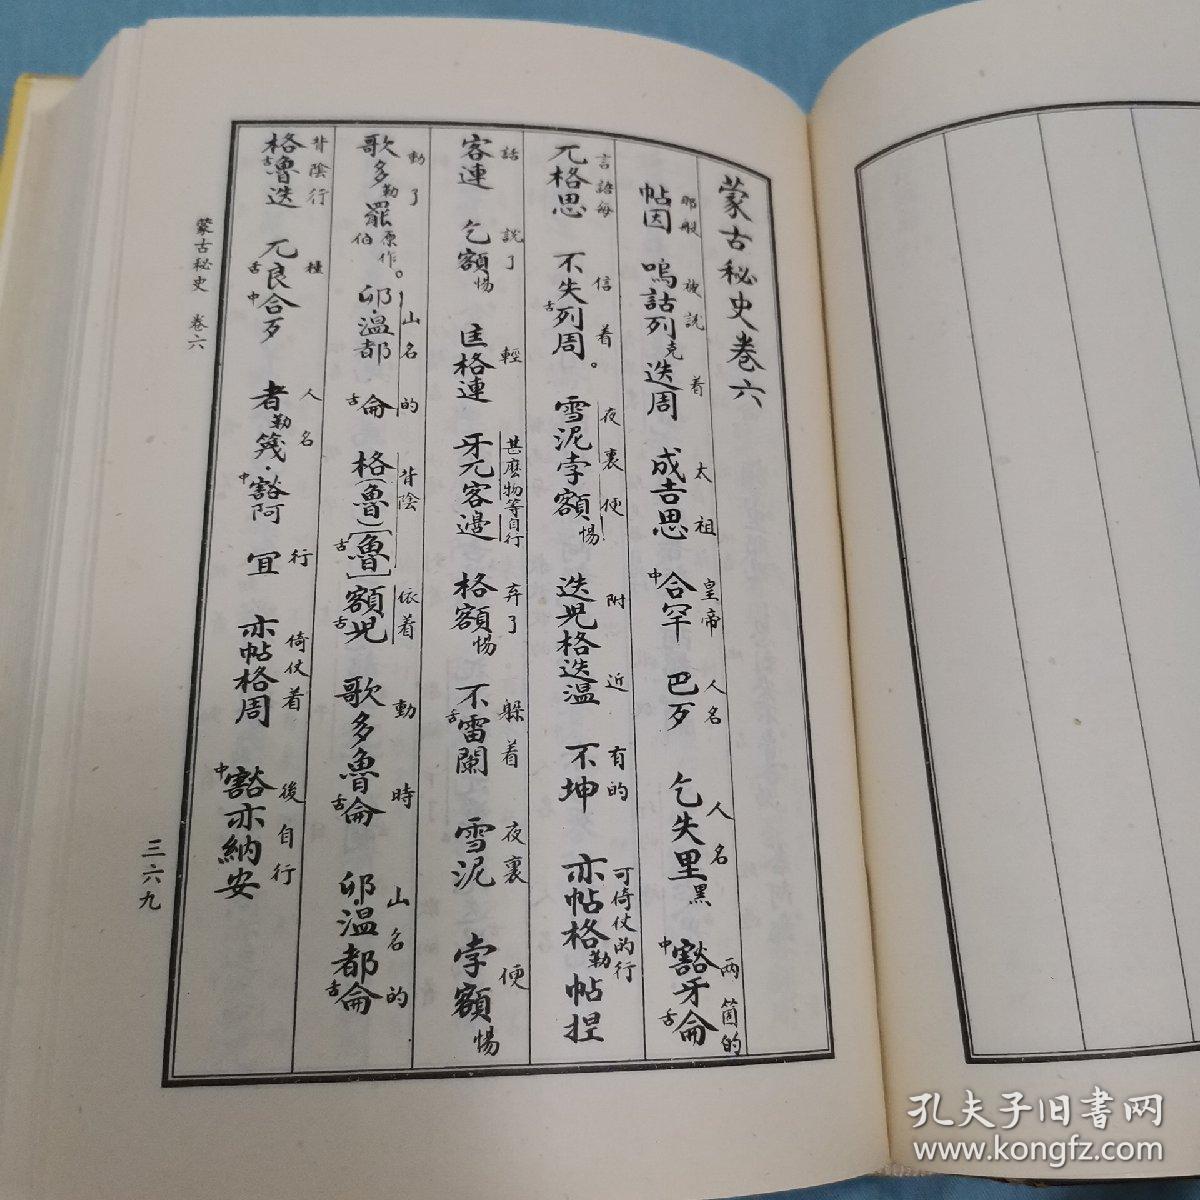 蒙古秘史卷六
那般 旋說 着 太祖 皇帝 人名 人名 兩箇的
帖因 嗚詁列克迭周 成吉思 中合罕 巴歹 乞失里黑 中豁牙舌侖
言語每 信着 夜裏便 附近 有的 可倚仗的行
兀格思 不失舌列周。 雪泥孛額惕 迭兒格迭溫 不坤 亦帖格勒帖捏
話 說了 輕 甚麼物等自行 弃了 躲着 夜裏 便
客連 乞額惕 匡格連 牙兀客邊 格額惕 不舌雷闌 雪泥 孛額惕
動了 山名的 背陰 依着 動時 山名的
歌多勒罷原作伯。 卯·溫都舌侖 格(魯)[舌魯]額舌兒 歌多魯舌侖 卯·溫都舌侖
背陰行 種 人名 行 倚仗着 後自行
格舌魯迭 兀舌良中合歹 者勒篾·中豁阿 宜 亦帖格周 中豁亦納安
蒙古秘史 卷六
三六九
孔夫子旧书网
www.kongfz.com